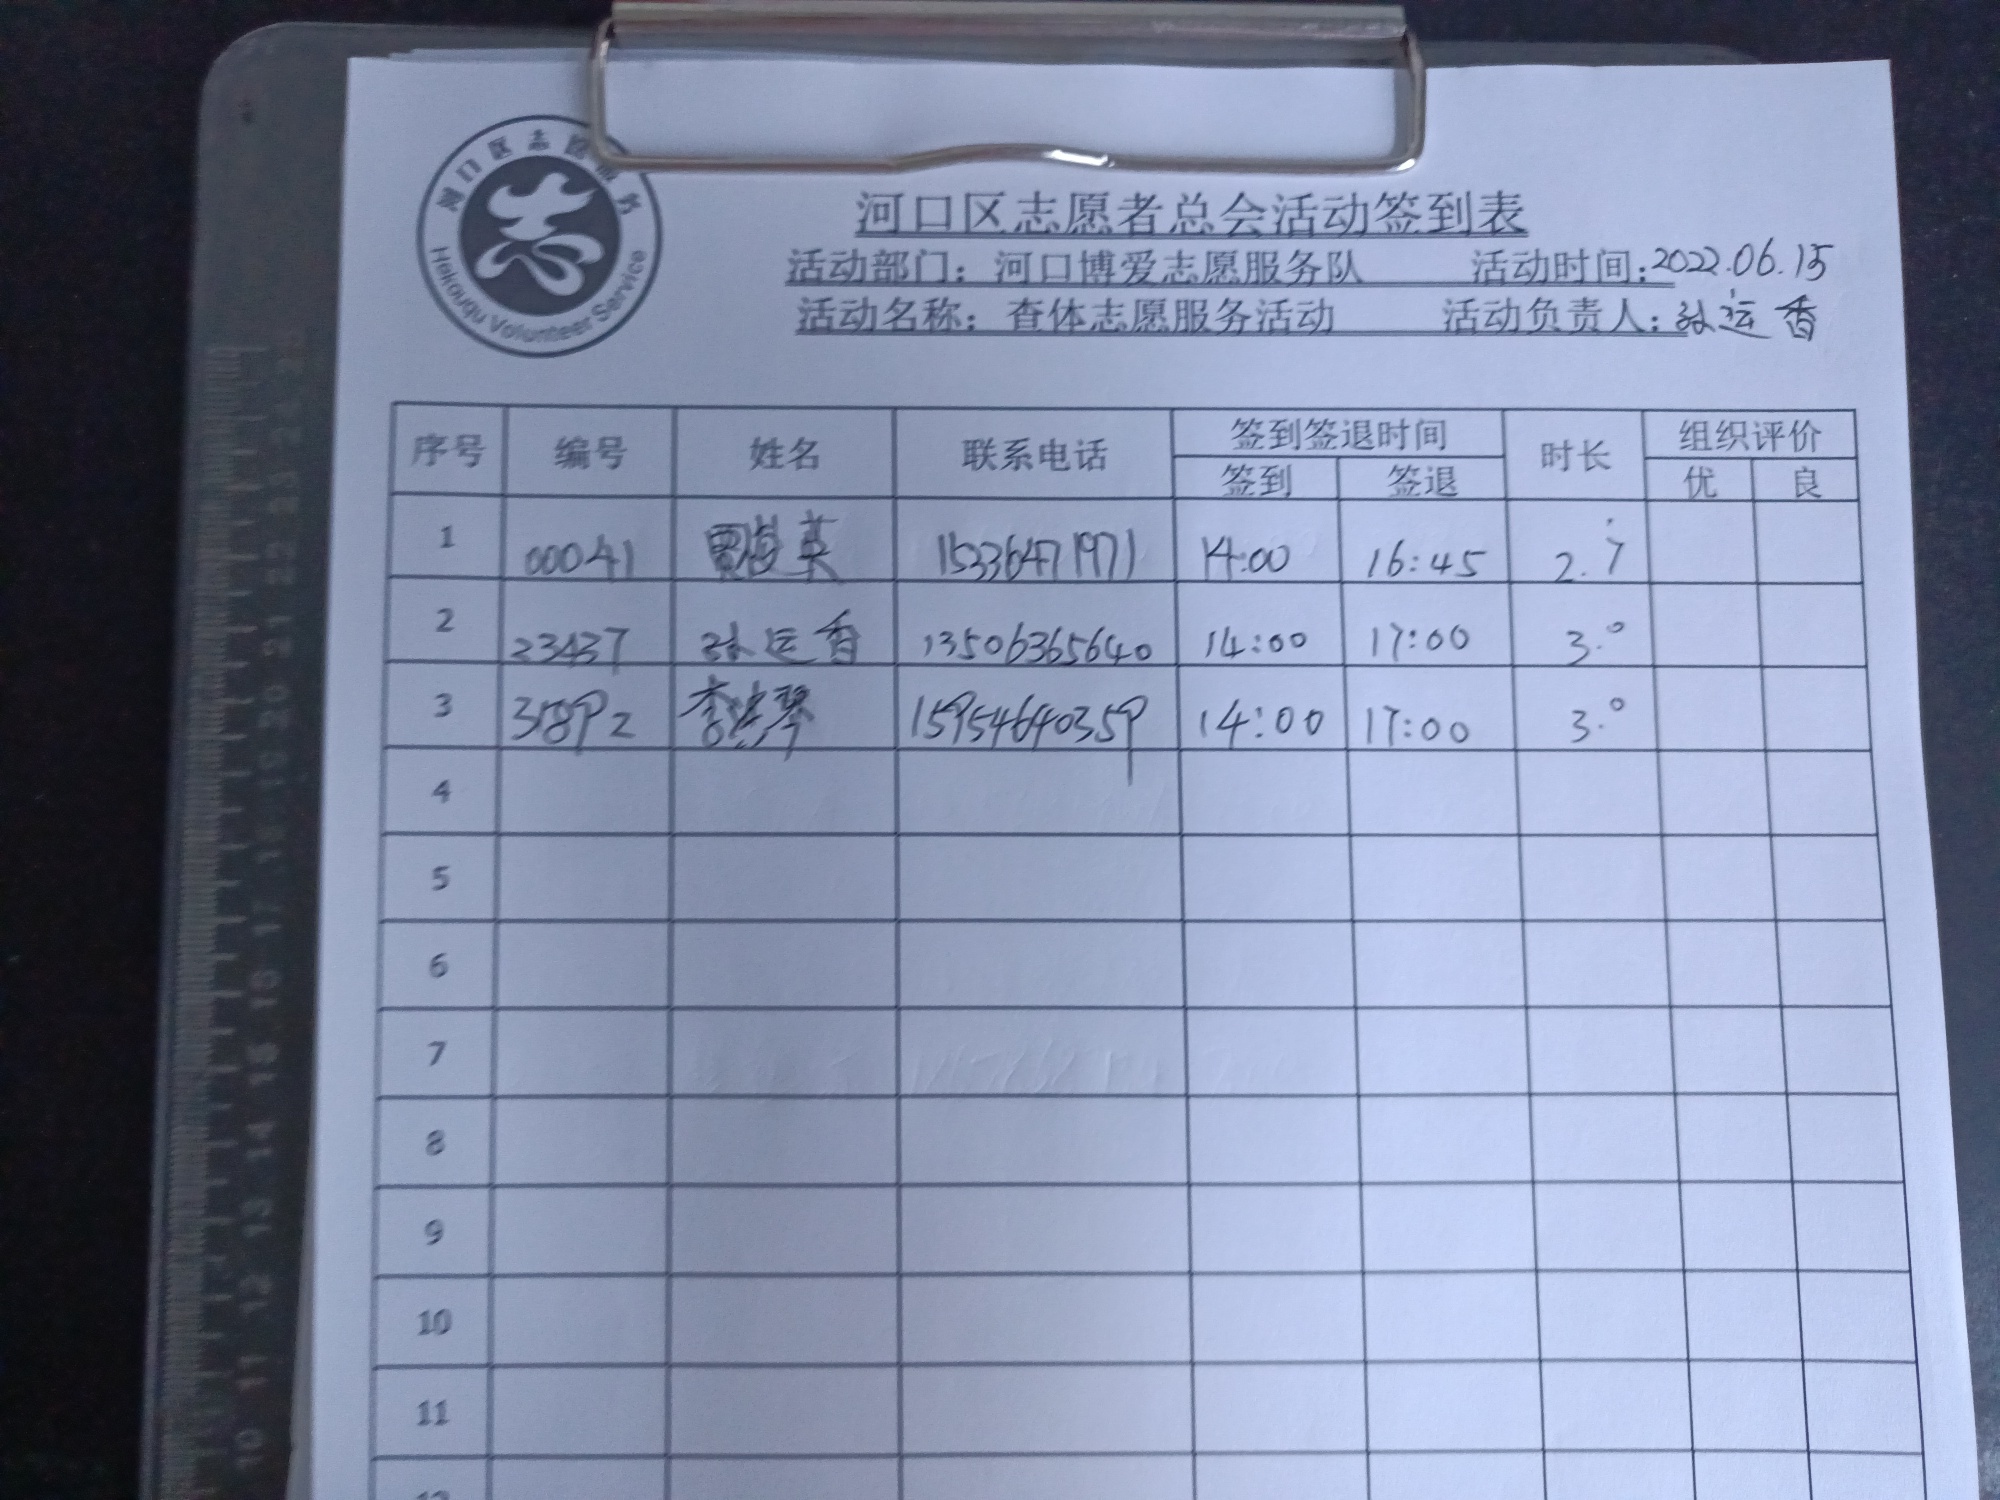 河口区志愿服务
Hekouqu Volunteer Service
河口区志愿者总会活动签到表
活动部门：河口博爱志愿服务队 活动时间：2022.06.15
活动名称：查体志愿服务活动 活动负责人：孙运香
序号 编号 姓名 联系电话 签到签退时间 时长 组织评价
签到 签退 优 良
1 00041 英 15336471971 14:00 16:45 2.7
2 23437 孙运香 13506365640 14:00 17:00 3.0
3 31892 李 琴 15954640359 14:00 17:00 3.0
4
5
6
7
8
9
10
11